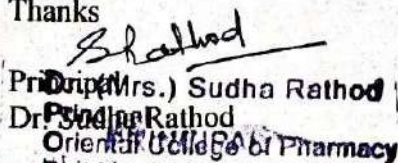 Thanks
SRathod
Principal
Dr. (Mrs.) Sudha Rathod
Dr. Sudha Rathod
Principal
Oriental College of Pharmacy